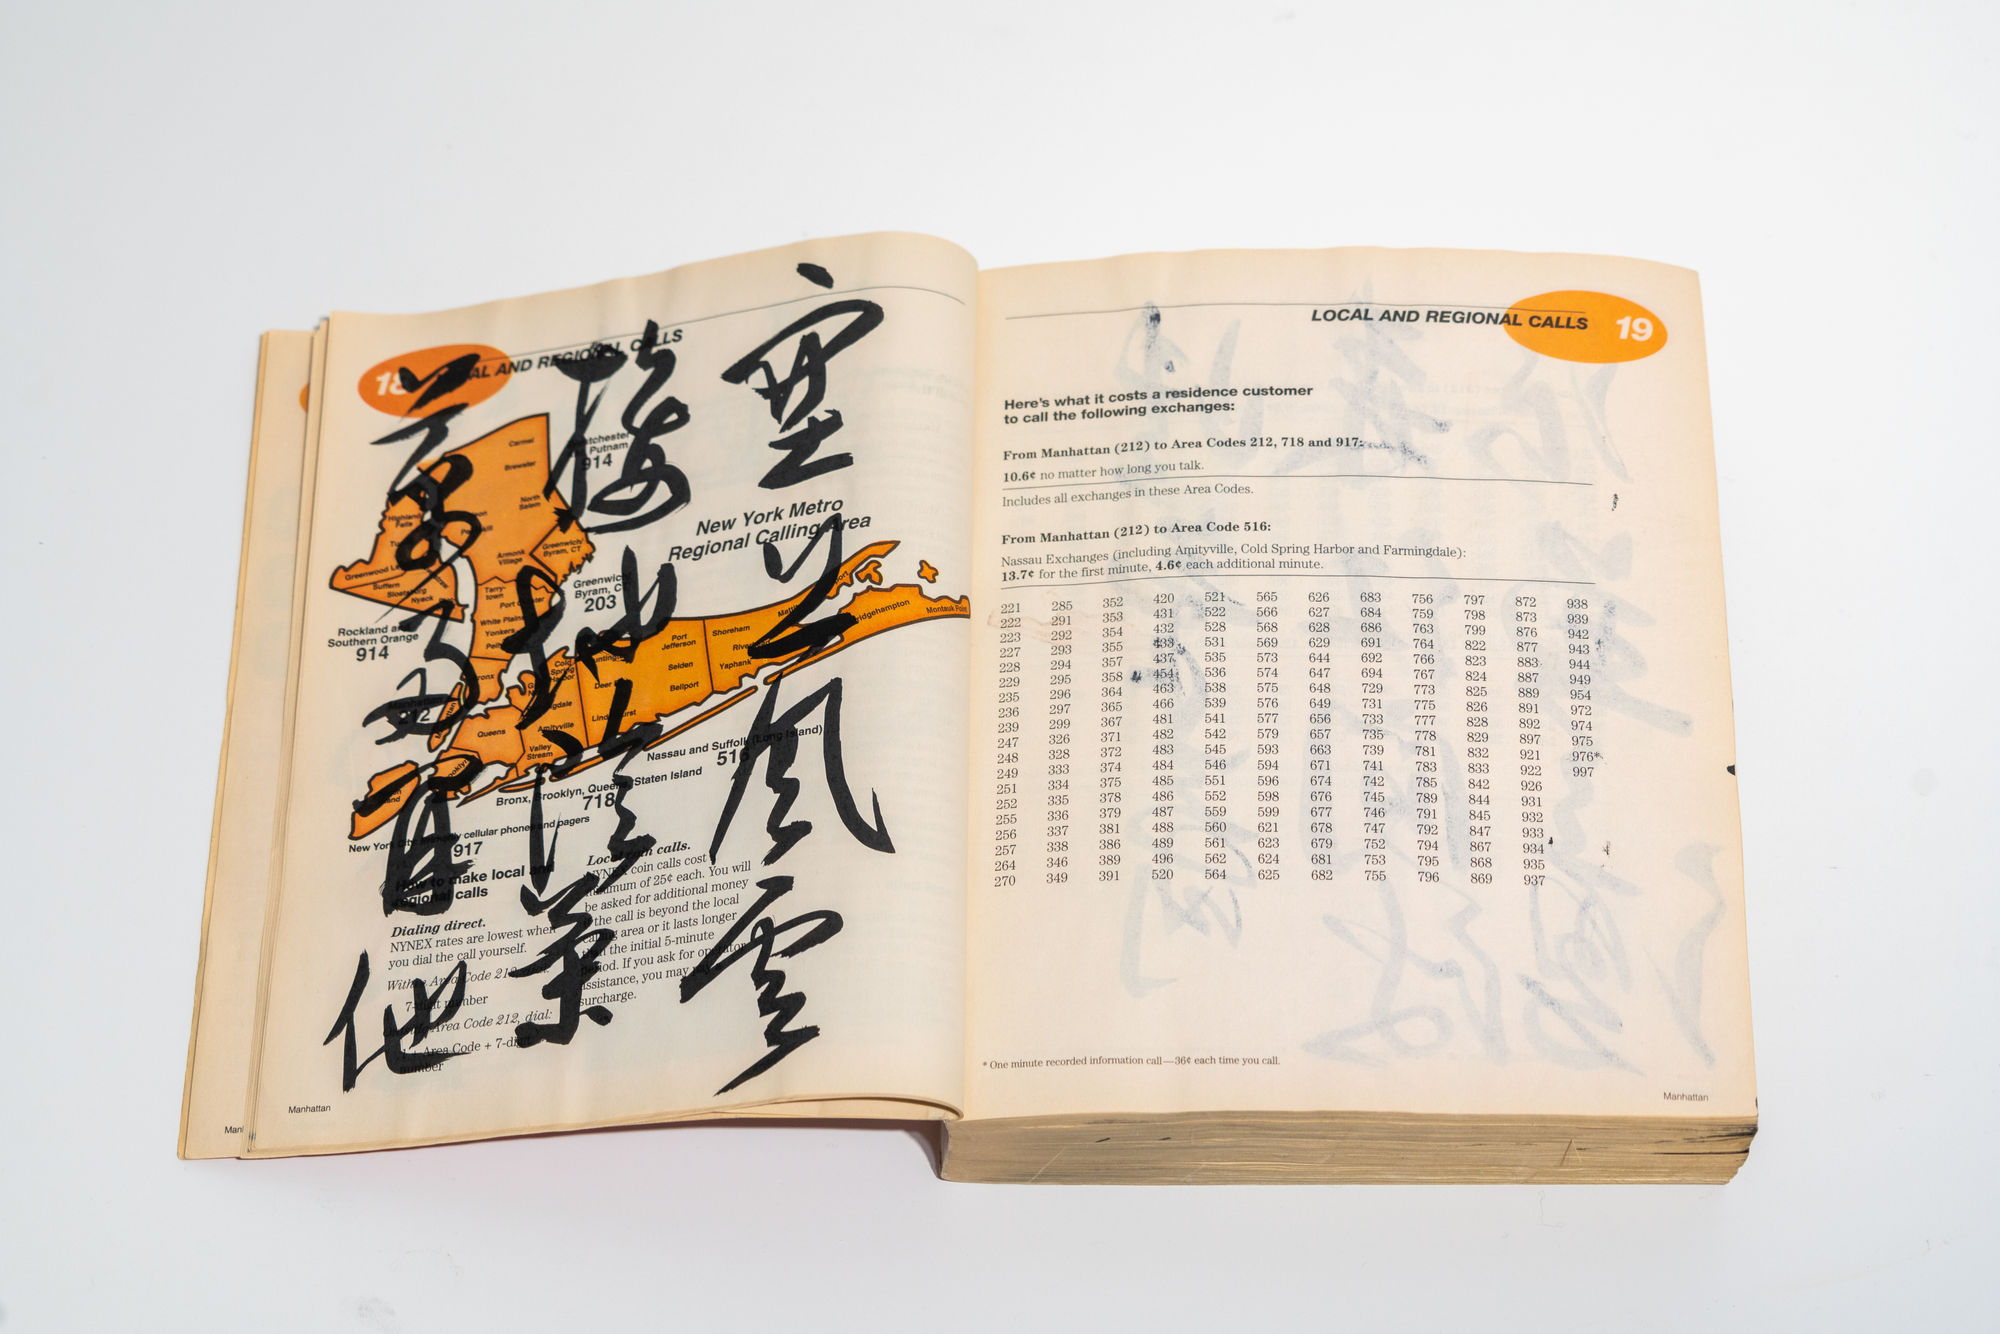 塞上風雲
接地陰叢
菊兩開他
18 LOCAL AND REGIONAL CALLS
New York Metro
Regional Calling Area
Carmel
Brewster
North
Salem
Armonk
Village
Greenwich/
Byram, CT
Westchester
Putnam
914
Greenwich/
Byram, CT
203
Highland
Falls
Suffern
Sloatsburg
Nyack
Tarry-
town
Port Chester
White Plains
Yonkers
Rockland and
Southern Orange
914
Manhattan
212
Bronx
Queens
Brooklyn
Cold
Spring
Harbor
Huntington
Amityville
Valley
Stream
Lindenhurst
Port
Jefferson
Selden
Bellport
Shoreham
Riverhead
Yaphank
Bridgehampton
Montauk Point
Nassau and Suffolk (Long Island)
516
Bronx, Brooklyn, Queens, Staten Island
718
New York City primarily cellular phones and pagers
917
How to make local and
regional calls
Dialing direct.
NYNEX rates are lowest when
you dial the call yourself.
Within Area Code 212, dial:
7-digit number
Outside Area Code 212, dial:
1 + Area Code + 7-digit
number
Local coin calls.
NYNEX coin calls cost a
minimum of 25¢ each. You will
be asked for additional money
if the call is beyond the local
calling area or it lasts longer
than the initial 5-minute
period. If you ask for operator
assistance, you may pay a
surcharge.
Manhattan
LOCAL AND REGIONAL CALLS 19
Here's what it costs a residence customer
to call the following exchanges:
From Manhattan (212) to Area Codes 212, 718 and 917:
10.6¢ no matter how long you talk.
Includes all exchanges in these Area Codes.
From Manhattan (212) to Area Code 516:
Nassau Exchanges (including Amityville, Cold Spring Harbor and Farmingdale):
13.7¢ for the first minute, 4.6¢ each additional minute.
221 285 352 420 521 565 626 683 756 797 872 938
222 291 353 431 522 566 627 684 759 798 873 939
223 292 354 432 528 568 628 686 763 799 876 942
227 293 355 433 531 569 629 691 764 822 877 943
228 294 357 437 535 573 644 692 766 823 883 944
229 295 358 454 536 574 647 694 767 824 887 949
235 296 364 463 538 575 648 729 773 825 889 954
236 297 365 466 539 576 649 731 775 826 891 972
239 299 367 481 541 577 656 733 777 828 892 974
247 326 371 482 542 579 657 735 778 829 897 975
248 328 372 483 545 593 663 739 781 832 921 976*
249 333 374 484 546 594 671 741 783 833 922 997
251 334 375 485 551 596 674 742 785 842 926
252 335 378 486 552 598 676 745 789 844 931
255 336 379 487 559 599 677 746 791 845 932
256 337 381 488 560 621 678 747 792 847 933
257 338 386 489 561 623 679 752 794 867 934
264 346 389 496 562 624 681 753 795 868 935
270 349 391 520 564 625 682 755 796 869 937
* One minute recorded information call—36¢ each time you call.
Manhattan